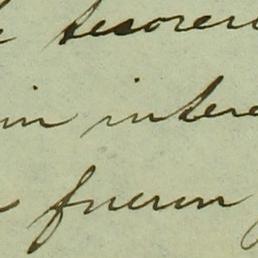 tesorer
in intere
fueron